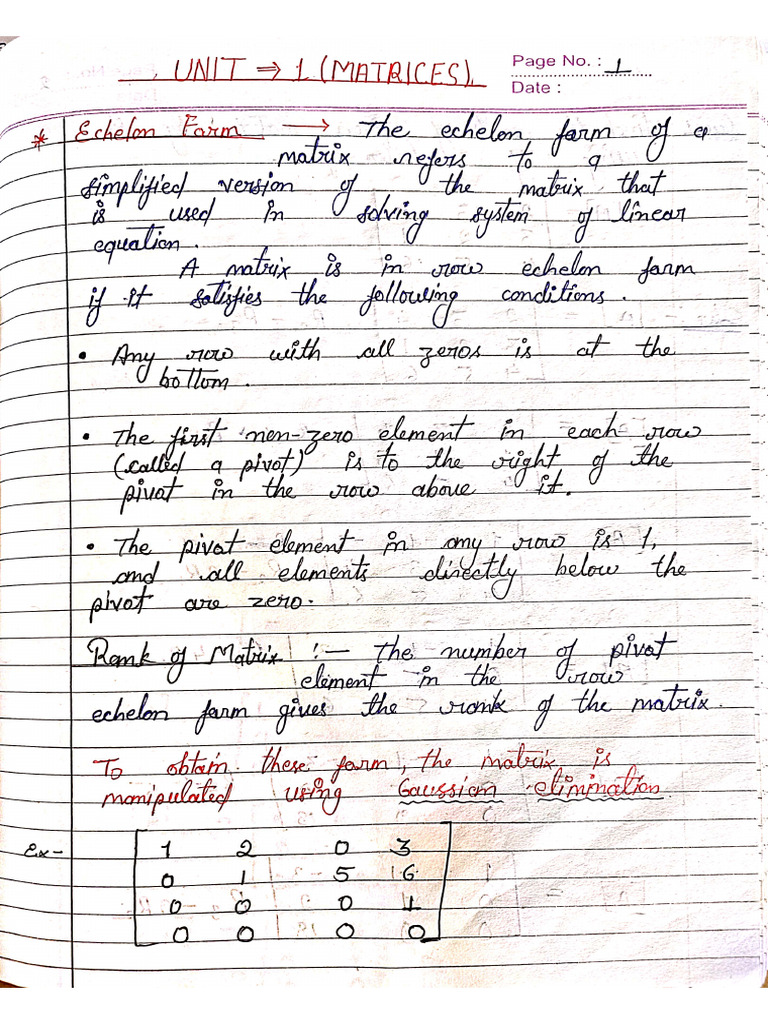 UNIT ⇒ 1 (MATRICES).
Page No. : 1
Date :
* Echelon Farm → The echelon farm of a
matrix refers to a
simplified version of the matrix that
is used in solving system of linear
equation.
A matrix is in row echelon farm
if it satisfies the following conditions.
• Any row with all zeros is at the
bottom.
• The first non-zero element in each row
(called a pivot) is to the right of the
pivot in the row above it.
• The pivot element in any row is 1,
and all elements directly below the
pivot are zero.
Rank of Matrix :- The number of pivot
element in the row
echelon farm gives the rank of the matrix.
To obtain these farm, the matrix is
manipulated using Gaussian elimination
Ex- 1 2 0 3
0 1 5 6
0 0 0 1
0 0 0 0